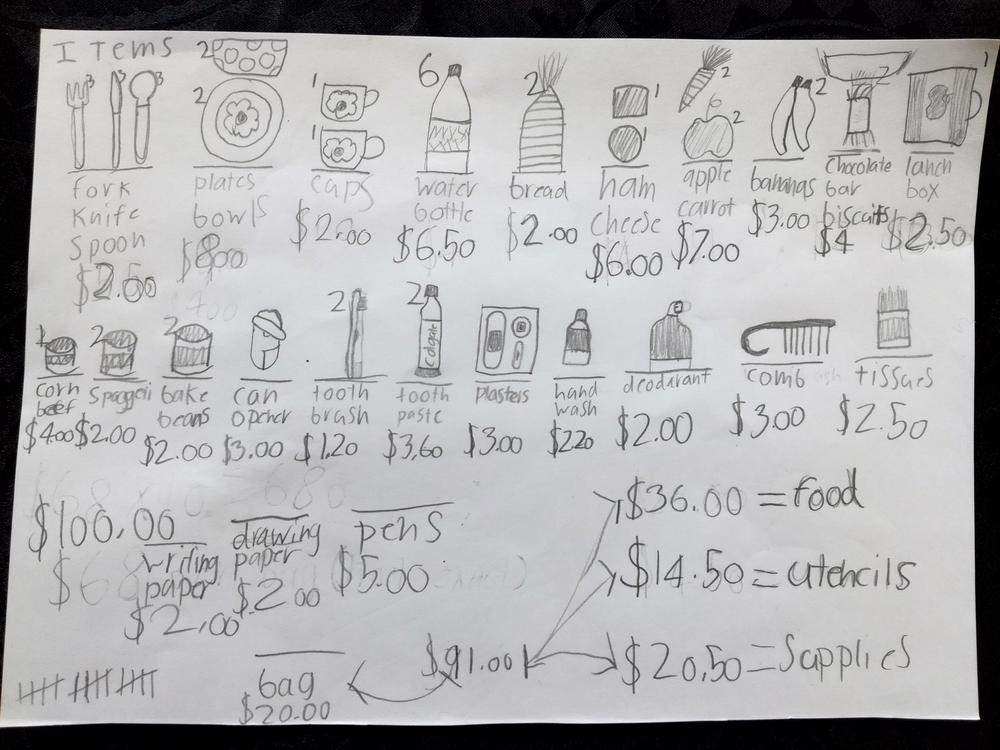 Items
3 3 3
2
2
1
1
6
2
1
1
2
2
2
2
1
fork
Knife
Spoon
$2.50
plates
bowls
$8.00
cups
$2.00
water
bottle
$6.50
bread
$2.00
ham
cheese
$6.00
apple
carrot
$7.00
bananas
$3.00
Chocolate
bar
biscuits
$4
lanch
box
$2.50
1
2
2
2
2
Colgate
corn
beef
$4.00
Spaggeti
$2.00
bake
beans
$2.00
can
opener
$3.00
tooth
brush
$1.20
tooth
paste
$3,60
plasters
$3.00
hand
wash
$2.20
deodarant
$2.00
comb
$3.00
tissues
$2.50
$100.00
writing
paper
$2,00
drawing
paper
$2.00
pens
$5.00
$36.00 = food
$14.50 = utencils
$20,50 = Supplies
$91.00
bag
$20.00